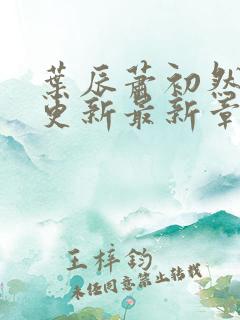 葉辰蕭初然
更新最新章
王梓鈞
未经同意禁止转载